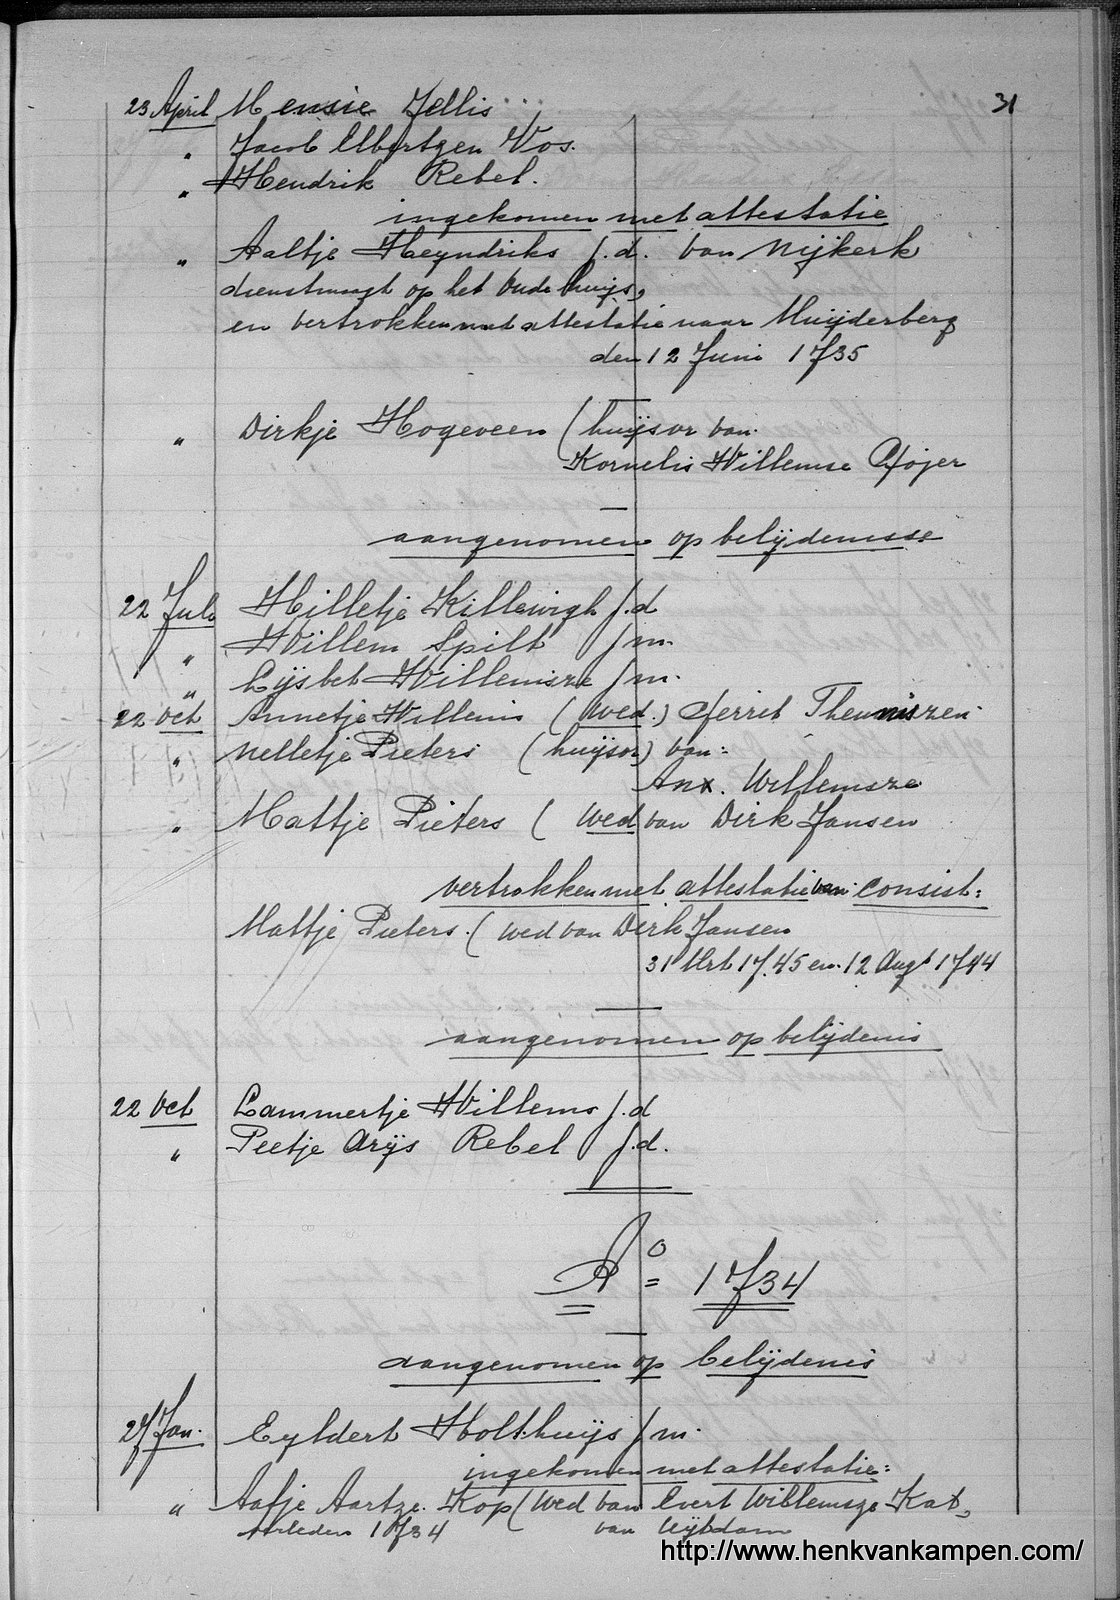 31
23 April Mensie Jellis
" Jacob Elbertzen Vos.
" Hendrik Rebel.
ingekomen met attestatie
" Aaltje Heyndriks j.d. van Nijkerk
dienstmagt op het Oude huijs,
en vertrokken met attestatie naar Muijderberg
den 12 Juni 1735
" Dirkje Hogeveen ( huijsvr van.
Kornelis Willemse Gojer
aangenomen op belijdenisse
22 Juli Hilletje Killewigh j.d
" Willem Spilt j m.
" Lijsbet Willemsze j m.
22 Oct Annetje Willems ( Wed.) Gerrit Theuniszen
" Nelletje Pieters ( huijsvr) van:
Anx. Willemsze
" Mattje Pieters ( Wed van Dirk Jansen
vertrokken met attestatie van consist:
Mattje Pieters. ( wed van Dirk Jansen
31 Mrt 1745 en. 12 Augt 1744
aangenomen op belijdenis
22 Oct Lammertje Willems j.d
" Peetje Arijs Rebel j.d.
Ao = 1734
aangenomen op belijdenis
27 Jan. Eyldert Holthuijs j m.
ingekomen met attestatie:
" Aafje Aartze. Kop ( Wed van Evert Willemsze Kat,
overleden 1734 van Uijtdam
http://www.henkvankampen.com/